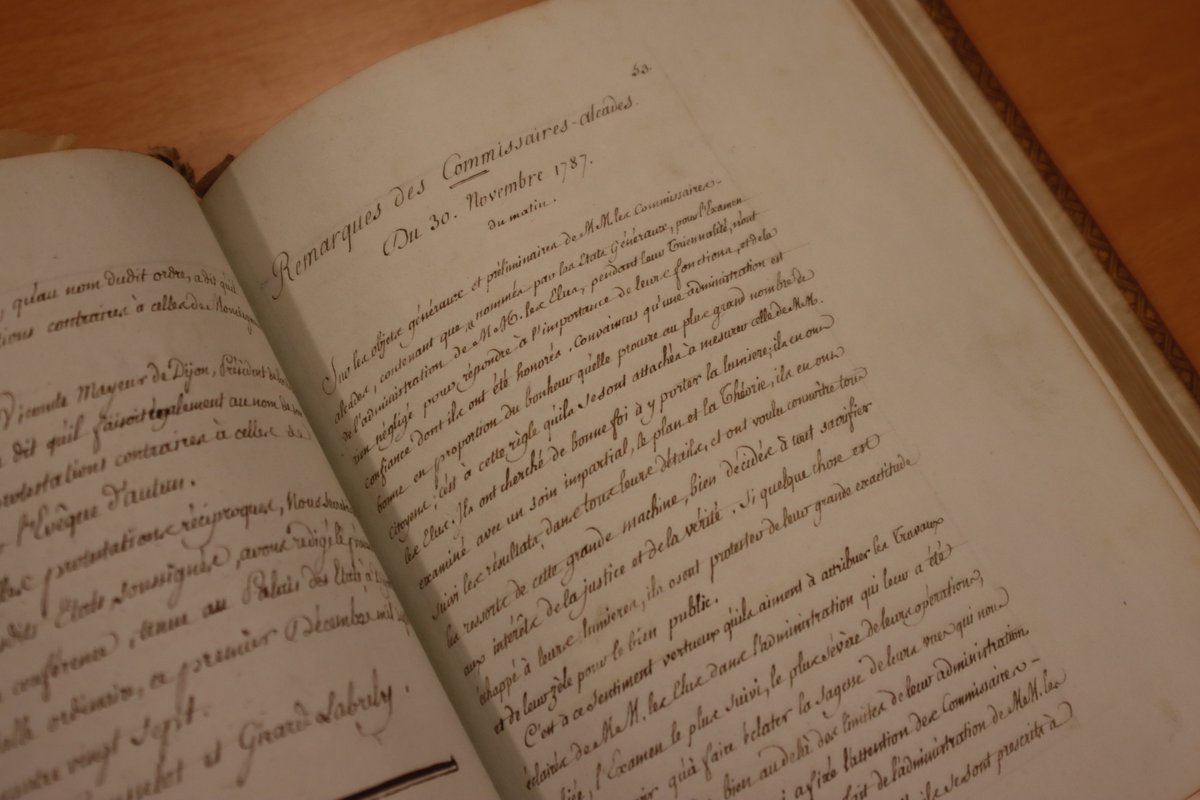 , qu'au nom dudit ordre, a dit qu'il
tions contraires à celles de
Vicomte Mayeur de Dijon, Président
dit qu'il faisoit également au nom de
protestations contraires à celles de
l'Evêque d'autun.
protestations réciproques, Nous
Etats soussignés, avons rédigé le
conférence, tenue au Palais des Etats à
ordinaire, ce premier Décembre mil
vingt sept.
et Girard Labrely.
53.
Remarques des Commissaires-alcades.
Du 30. Novembre 1787.
du matin.
Sur les objets généraux et préliminaires de MM. les Commissaires-
alcades, contenant que nommés par les Etats Généraux, pour l'Examen
de l'administration de MM. les Elus, pendant leur Triennalité, n'ont
rien négligé pour répondre à l'importance de leurs fonctions, et de la
confiance dont ils ont été honorés. Convaincus qu'une administration est
bonne en proportion du bonheur qu'elle procure au plus grand nombre de
Citoyens; c'est à cette règle qu'ils se sont attachés à mesurer celle de MM.
les Elus. Ils ont cherché de bonne foi à y porter la lumiere; ils en ont
examiné avec un soin impartial, le plan et la Théorie; ils en ont
suivi les résultats, dans tous leurs détails, et ont voulu connoître tous
les ressorts de cette grande machine, bien décidés à tout sacrifier
aux intérêts de la justice et de la vérité. Si quelque chose est
échappé à leurs lumieres, ils osent protester de leur grande exactitude
et de leur zèle pour le bien public.
C'est à ce sentiment vertueux qu'ils aiment à attribuer les Travaux
éclairés de MM. les Elus dans l'administration qui leur a été
confiée, l'Examen le plus suivi, le plus sévère de leurs opérations,
qu'à faire éclater la sagesse de leurs vues qui nous
bien au delà des limites de leur administration
a fixé l'attention des Commissaires-
de l'administration de MM. les
ils se sont prescrits à